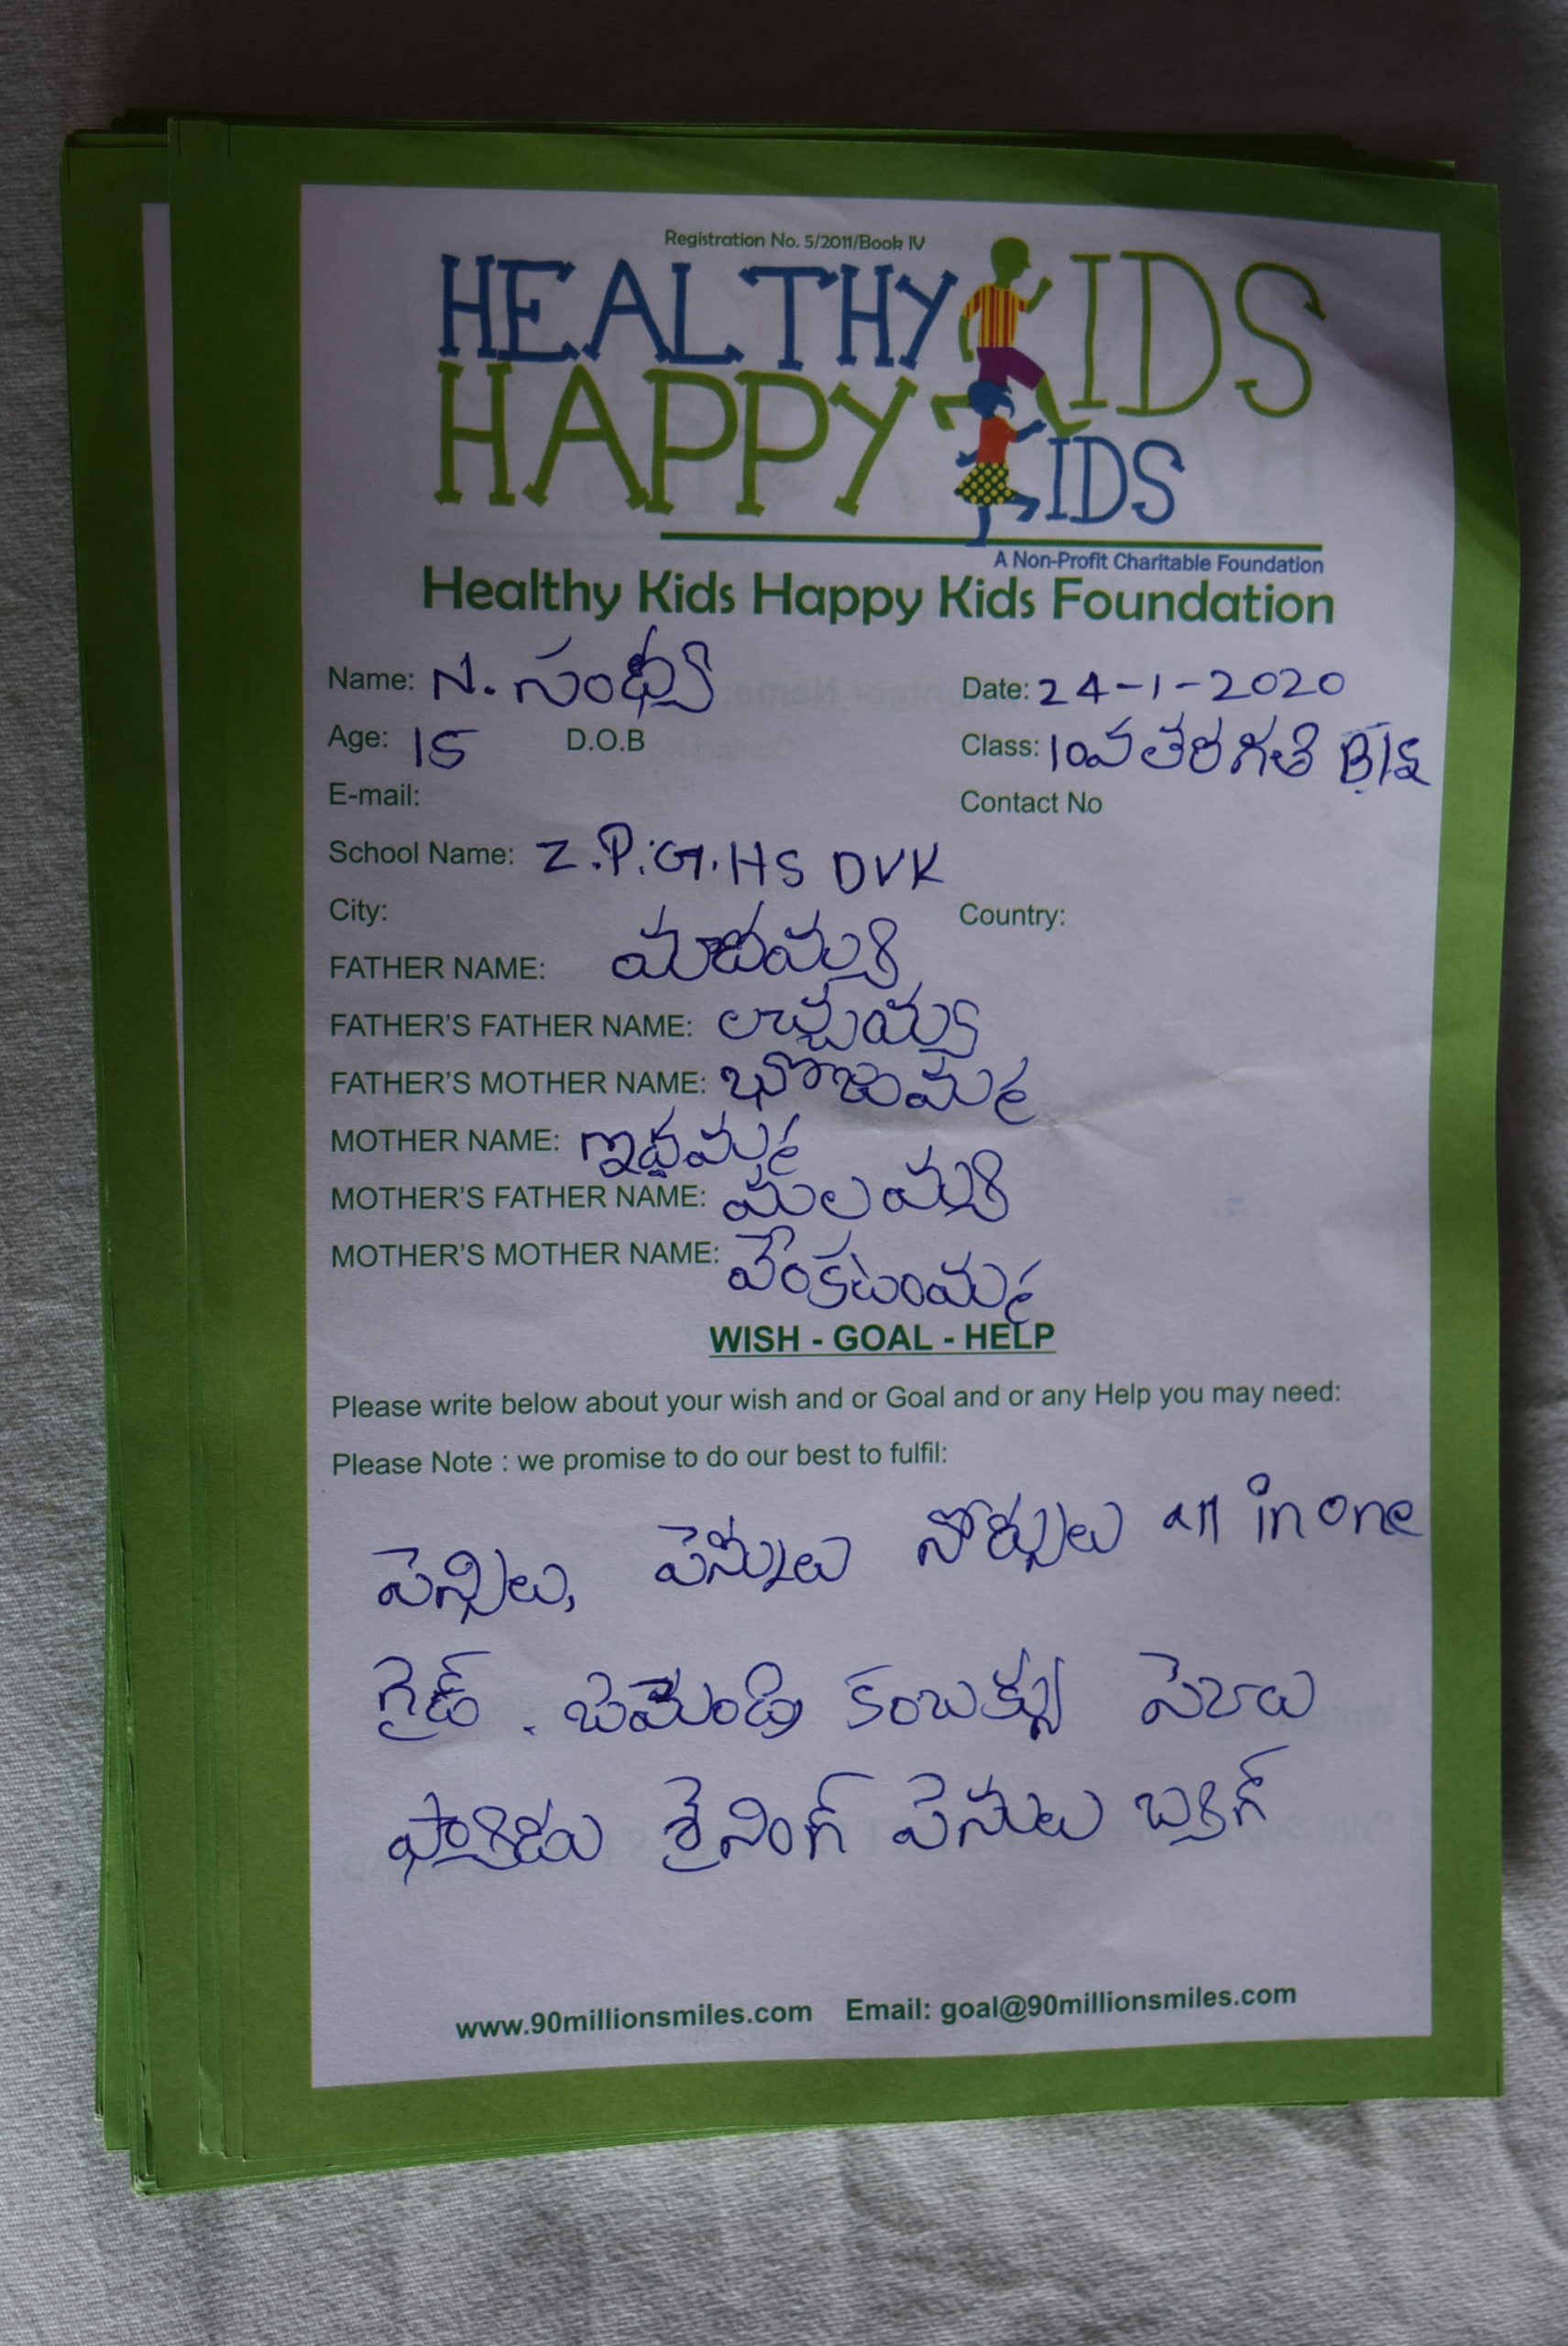 Registration No. 5/2011/Book IV
HEALTHY KIDS
HAPPY KIDS
A Non-Profit Charitable Foundation
Healthy Kids Happy Kids Foundation
Name: N. సంధ్య Date: 24-1-2020
Age: 15 D.O.B Class: 10వ తరగతి
E-mail: Contact No
School Name: Z.P.G.HS DVK
City: Country:
FATHER NAME:
FATHER'S FATHER NAME: లచ్చయ్య
FATHER'S MOTHER NAME: భోజమ్మ
MOTHER NAME: ఇద్దమ్మ
MOTHER'S FATHER NAME: మలయ్య
MOTHER'S MOTHER NAME: వేంకటంమ్మ
WISH - GOAL - HELP
Please write below about your wish and or Goal and or any Help you may need:
Please Note : we promise to do our best to fulfil:
పెన్సిలు, పెన్నులు నోట్సులు all in one
గైడ్. కంబక్సు
పెనులు బ్యాగ్
www.90millionsmiles.com Email: goal@90millionsmiles.com